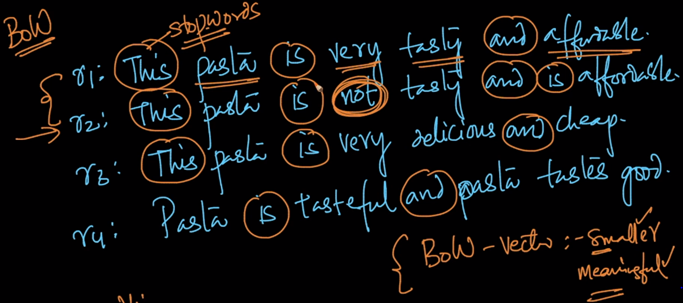 BoW
stopwords
r1: This pasta is very tasty and affordable.
r2: This pasta is not tasty and is affordable.
r3: This pasta is very delicious and cheap.
r4: Pasta is tasteful and pasta tastes good.
BoW - Vector :- Smaller
meaningful